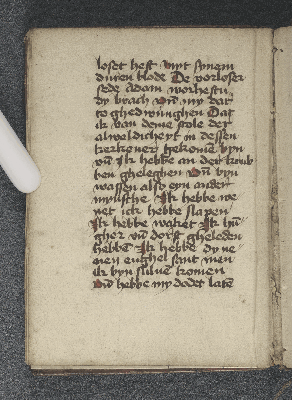 losdt hest vnyt synem
duren blode De vorloser
sede Adam worhestu
dy brach vñ my dat
to ghedwunghen Dat
ik van deme stole der
alweldicheyt in dessen
kerkener ghekome byn
vñ Ik hebbe an der krub
ben gheleghen vñ byn
wassen also eyn ander
mynsche Ik hebbe we
net ick hebbe slapen
Ik hebbe waket Ik hū
gher vñ dorst gheleden
hebbe Ik hebbe dy ne
nen enghel sant men
ik byn sulue komen
vñ hebbe my dodet latē